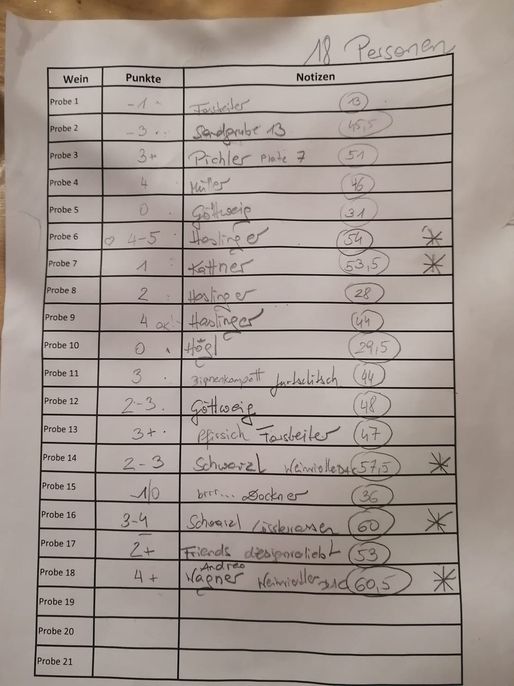 18 Personen
Wein Punkte Notizen
Probe 1 -1 13
Probe 2 -3 Sandgrube 13 45,5
Probe 3 3+ Pichler Platz 7 51
Probe 4 4 Müller 46
Probe 5 0 Göttweig 31
Probe 6 4-5 Haslinger 54 *
Probe 7 1 Kattner 53,5 *
Probe 8 2 Haslinger 28
Probe 9 4 ok Haslinger 44
Probe 10 0 Högl 29,5
Probe 11 3 Jurtschitsch 44
Probe 12 2-3 Göttweig 48
Probe 13 3+ Pfirsich 47
Probe 14 2-3 Schwarzl 57,5 *
Probe 15 1/0 brrr... Dockner 36
Probe 16 3-4 Schwarzl 60 *
Probe 17 2+ Friends 53
Andrea
Probe 18 4+ Wagner 60,5 *
Probe 19
Probe 20
Probe 21